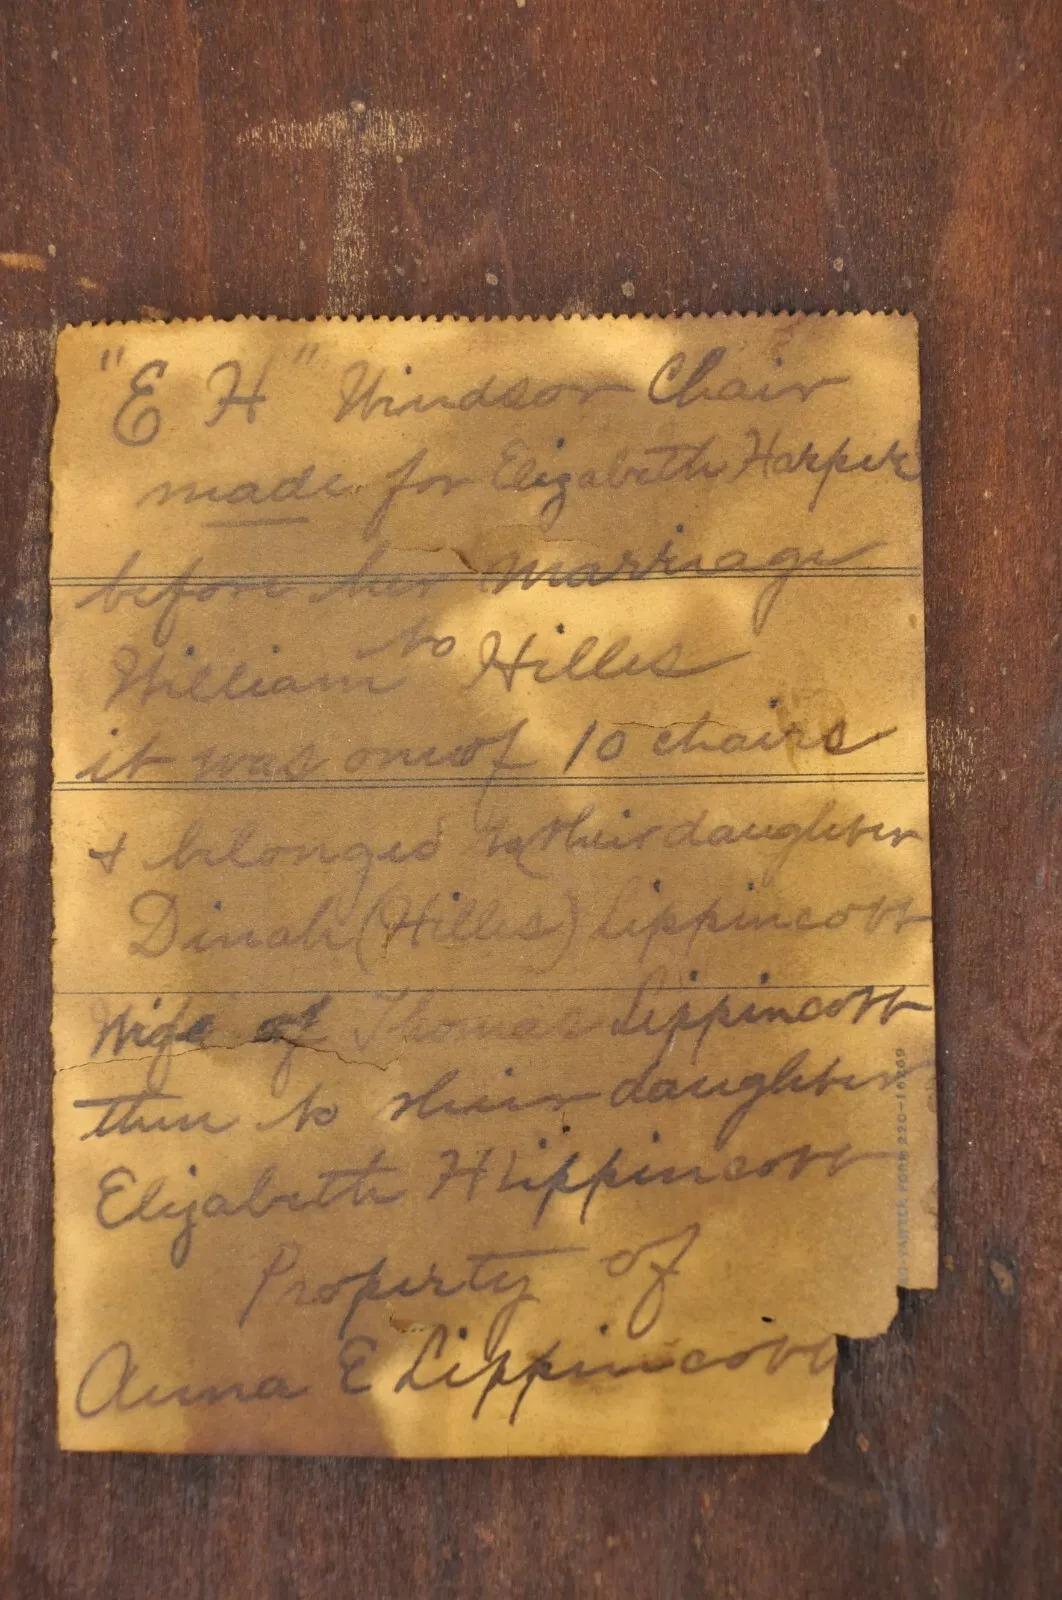 "E H" Windsor Chair
made for Elizabeth Harper
before her marriage
to
William Hilles
it was one of 10 chairs
& belonged to their daughter
Dinah (Hilles) Lippincott
Wife of Thomas Lippincott
then to their daughter
Elizabeth H Lippincott
Property of
Anna E Lippincott
FORM 220-